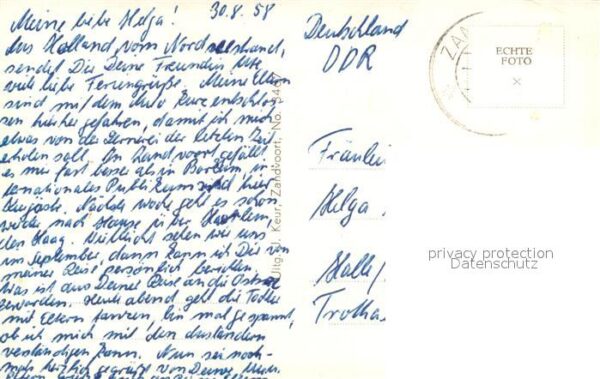 Meine liebe Helga! 30.8.58
Aus Holland vom Nordseestrand,
sendet Dir Deine Freundin Ute
viele liebe Feriengrüße. Meine Eltern
sind mit dem Auto kurz entschlos
sen hierher gefahren, damit ich mich
etwas von der Lernerei der letzten Zeit
erholen soll. In Zandvoort gefällt
es mir fast besser als in Borkum, in
ternationales Publikum sind hier
Nächste Woche geht es schon
wieder nach Hause über Haarlem
den Haag. Vielleicht sehen wir uns
im September, dann kann ich Dir von
meiner Reise persönlich berichten.
Was ist aus Deiner Reise an die Ostsee
geworden. Heute abend geht die Tochter
mit Eltern tanzen, bin mal gespannt,
ob ich mich mit den Ausländern
verständigen kann. Nun sei noch-
mals herzlich gegrüßt von Deiner
Deutschland
DDR
Fräulein
Helga
Halle/
Trotha
ECHTE
FOTO
Keur, Zandvoort, No.
privacy protection
Datenschutz